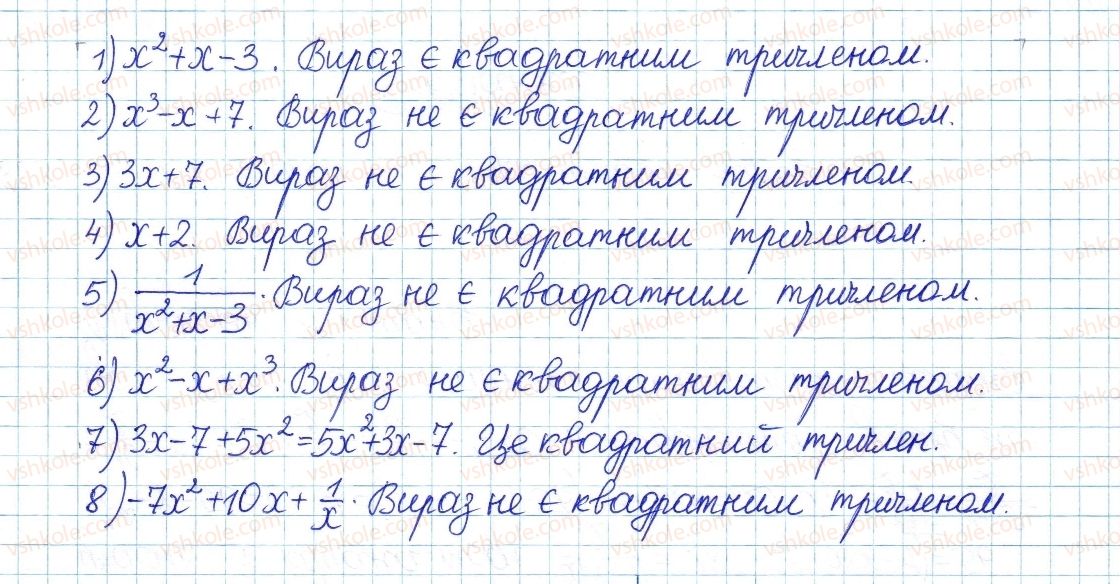 1) x²+x-3. Вираз є квадратним тричленом.
2) x³-x+7. Вираз не є квадратним тричленом.
3) 3x+7. Вираз не є квадратним тричленом.
4) x+2. Вираз не є квадратним тричленом.
5) 1/(x²+x-3). Вираз не є квадратним тричленом.
6) x²-x+x³. Вираз не є квадратним тричленом.
7) 3x-7+5x²=5x²+3x-7. Це квадратний тричлен.
8) -7x²+10x+1/x. Вираз не є квадратним тричленом.